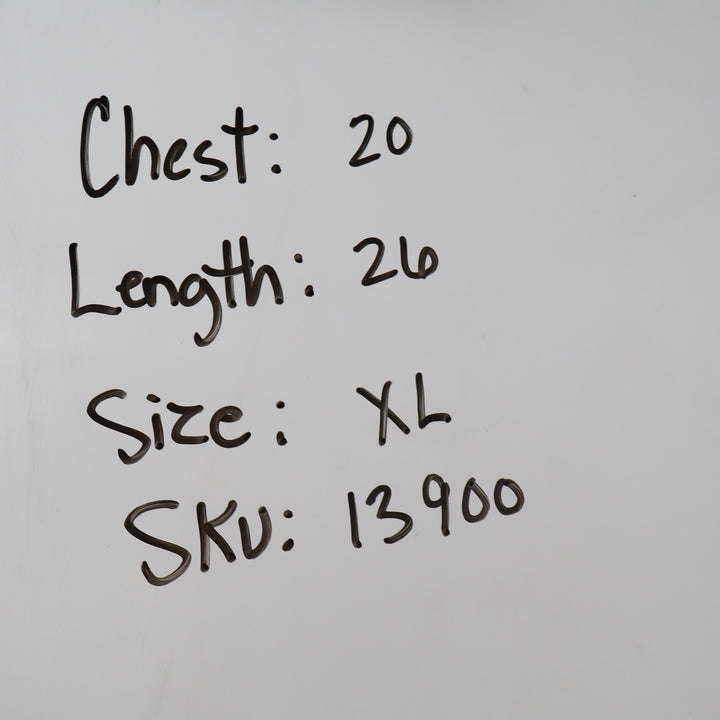 Chest: 20
Length: 26
Size: XL
SKU: 13900